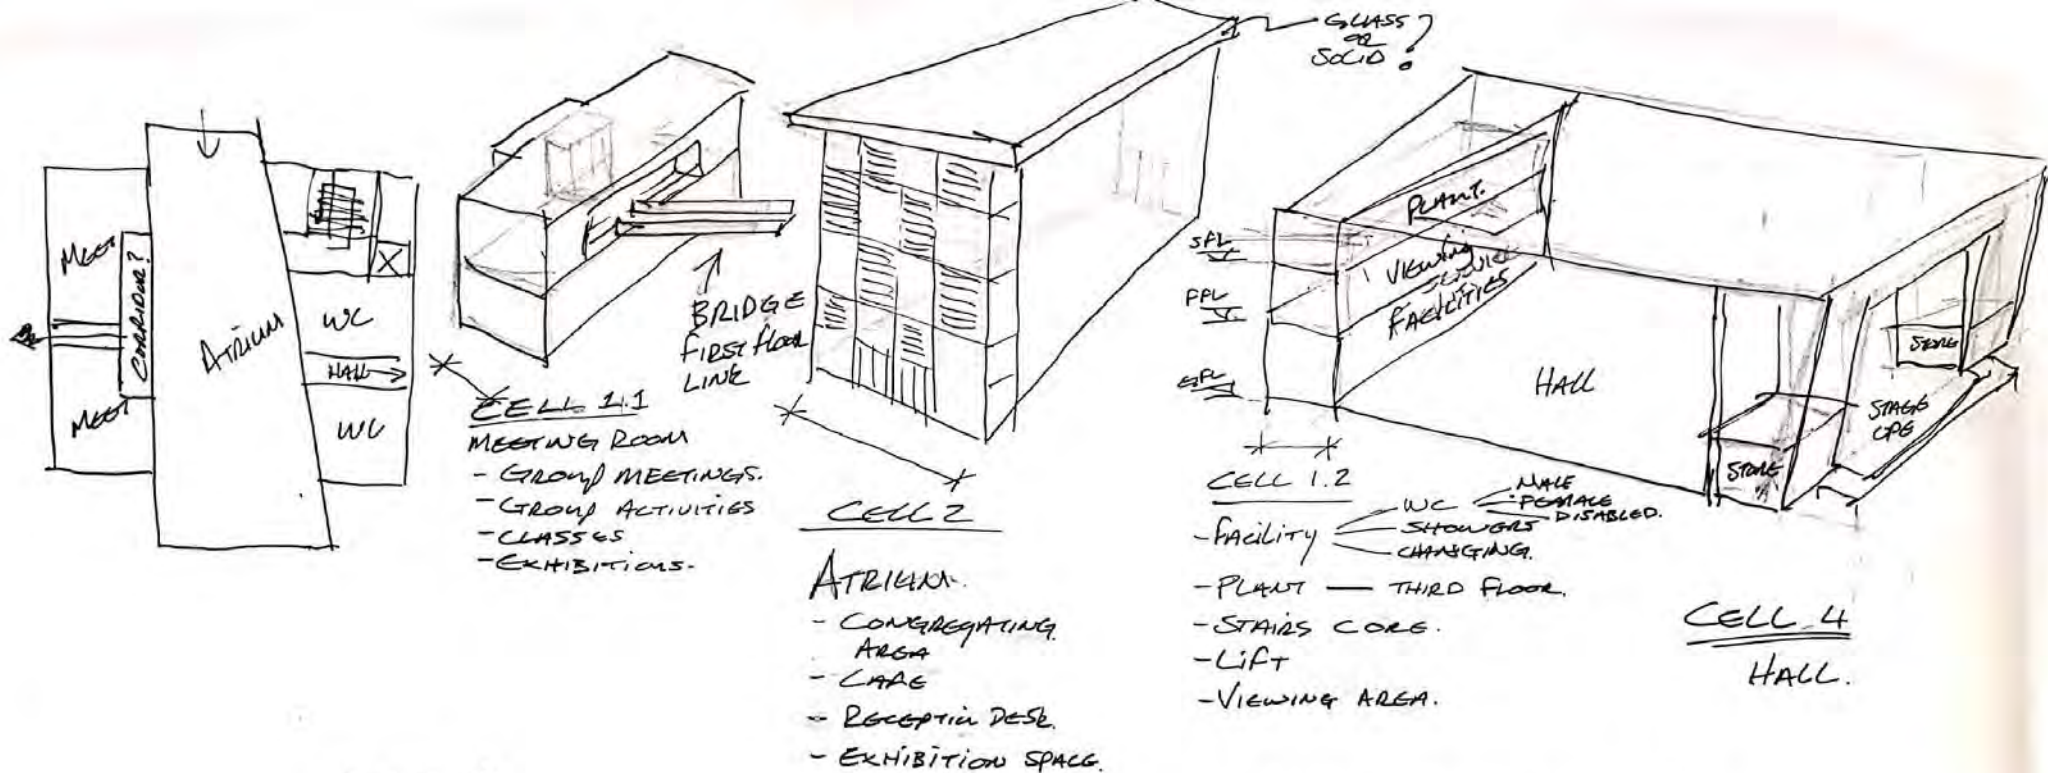 MEET
CORRIDOR?
MEET
ATRIUM
WC
HALL
WC
BRIDGE
FIRST FLOOR
LINK
CELL 1.1
MEETING ROOM
- GROUP MEETINGS.
- GROUP ACTIVITIES
- CLASSES
- EXHIBITIONS.
GLASS
OR
SOLID?
CELL 2
ATRIUM.
- CONGREGATING.
AREA
- CAFE
- RECEPTION DESK.
- EXHIBITION SPACE.
SFL
FFL
GFL
PLANT.
VIEWING
FACILITIES
HALL
STORE
STORE
STAGE
OPE
CELL 1.2
- FACILITY
WC
MALE
FEMALE
DISABLED.
SHOWERS
CHANGING.
- PLANT — THIRD FLOOR.
- STAIRS CORE.
- LIFT
- VIEWING AREA.
CELL 4
HALL.